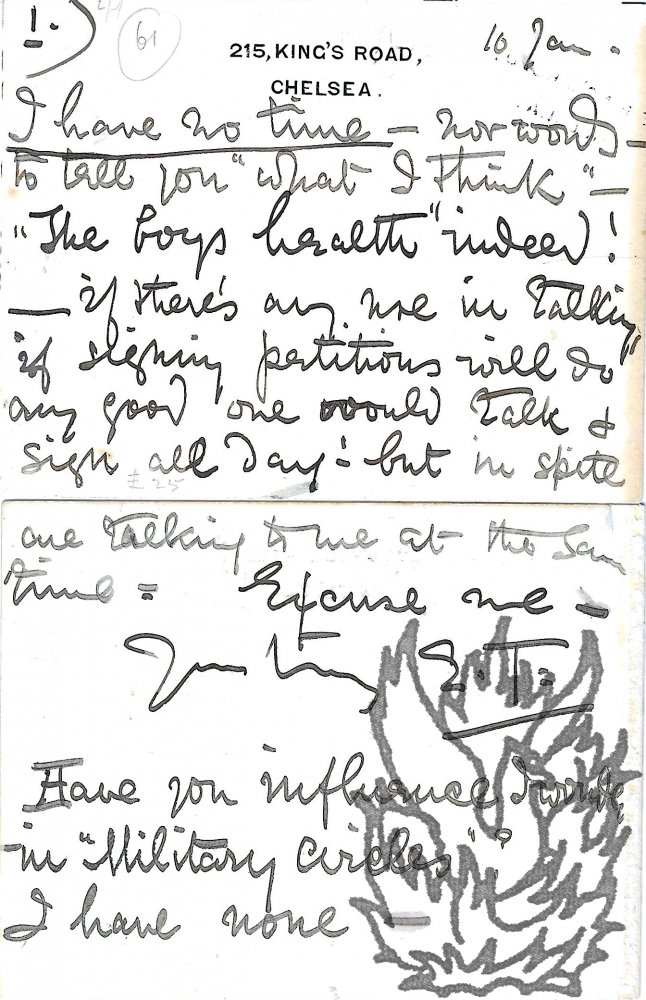 1.
61
10 Jan.
215, KING'S ROAD,
CHELSEA.
I have no time — nor words —
to tell you "what I think" —
"The boys health" indeed!
— if there's any use in talking
if signing petitions will do
any good one would talk &
sign all day! but in spite
£25
one talking to me at the same
time = Excuse me —
E.T.
Have you influence I wonder
in "Military circles"?
I have none —